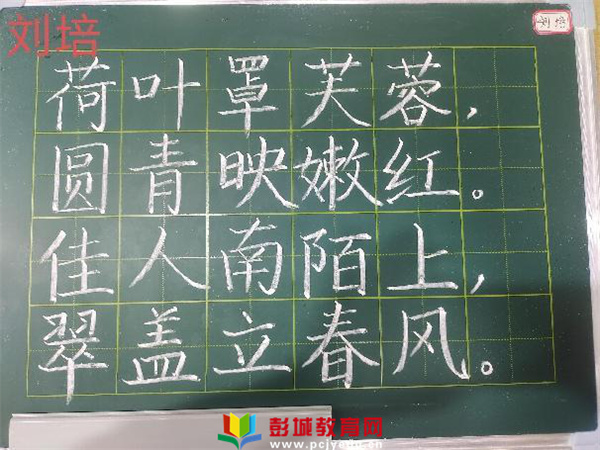 刘培
刘培
荷叶罩芙蓉，
圆青映嫩红。
佳人南陌上，
翠盖立春风。
彭城教育网
www.pcjyedu.cn